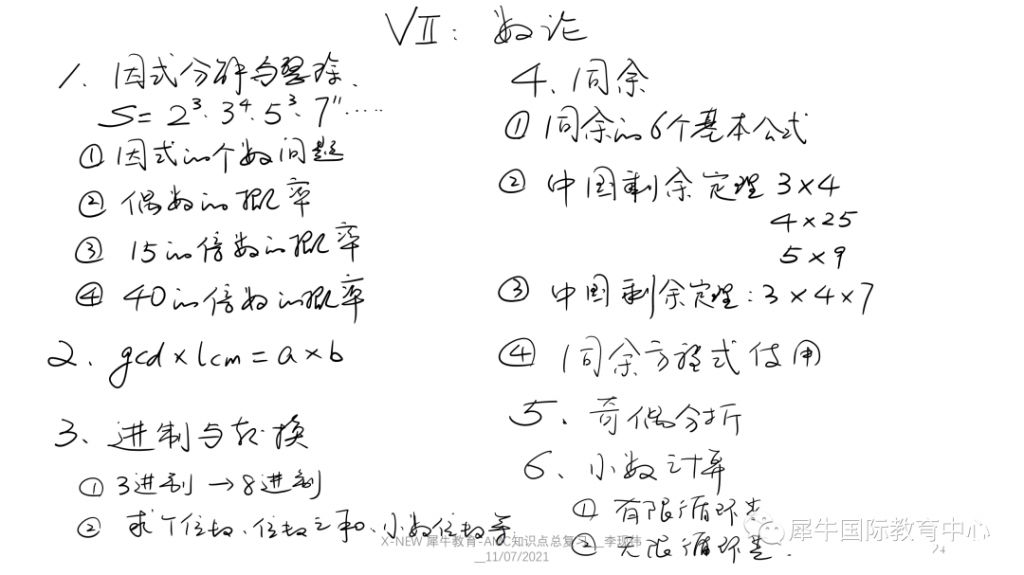 VII: 数论
1、因式分解与整除.
S = 2³·3⁴·5³·7¹¹·····
① 因式的个数问题
② 偶数的概率
③ 15的倍数的概率
④ 40的倍数的概率
2、gcd × lcm = a × b
3、进制与转换
① 3进制 → 8进制
② 求个位数、位数之和、小数位数等
4、同余
① 同余的6个基本公式
② 中国剩余定理 3×4
4×25
5×9
③ 中国剩余定理: 3×4×7
④ 同余方程式使用
5、奇偶分析
6、小数计算
① 有限循环类
② 无限循环类.
X-NEW 犀牛教育-AMC知识点总复习__李现伟
__11/07/2021
犀牛国际教育中心
24